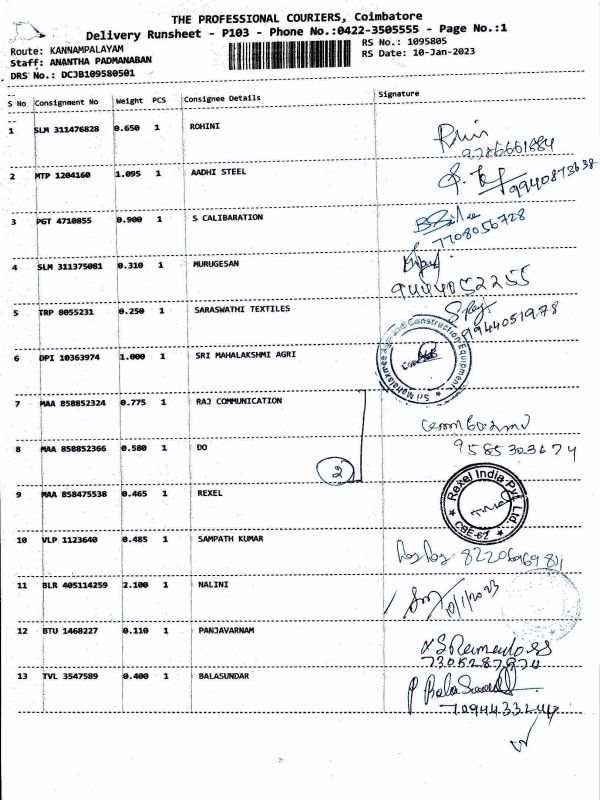 THE PROFESSIONAL COURIERS, Coimbatore
Delivery Runsheet - P103 - Phone No.:0422-3505555 - Page No.:1
Route: KANNAMPALAYAM
RS No.: 1095805
Staff: ANANTHA PADMANABAN
RS Date: 10-Jan-2023
DRS No.: DCJB109580501
S No Consignment No Weight PCS Consignee Details Signature
1 SLM 311476828 0.650 1 ROHINI
9786661884
2 MTP 1204160 1.095 1 AADHI STEEL
9940873638
3 PGT 4710855 0.900 1 S CALIBARATION
7708056728
4 SLM 311375081 0.310 1 MURUGESAN
9444052255
5 TRP 8055231 0.250 1 SARASWATHI TEXTILES
9944051978
6 DPI 10363974 1.000 1 SRI MAHALAKSHMI AGRI
Sri Mahalaxmee Agri and Construction Equipment
7 MAA 858852324 0.775 1 RAJ COMMUNICATION
8 MAA 858852366 0.580 1 DO
2
9585303674
9 MAA 858475538 0.465 1 REXEL
Rexel India Pvt. Ltd.
CBE-62
10 VLP 1123640 0.485 1 SAMPATH KUMAR
11 BLR 405114259 2.100 1 NALINI
10/1/2023
12 BTU 1468227 0.110 1 PANJAVARNAM
7305287974
13 TVL 3547589 0.400 1 BALASUNDAR